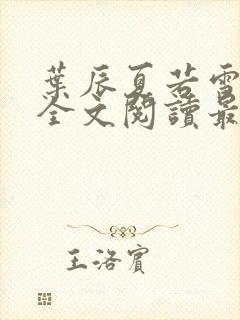 葉辰夏若雪
全文閱讀最
王洛賓